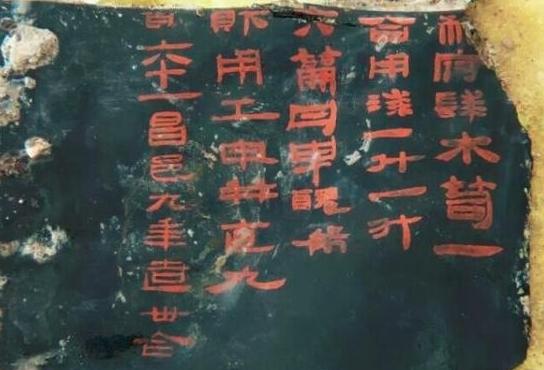 私府髹木笥一
合用漆一斗一升
六籥丹臾醜布
財用工牢并直九
百六十一昌邑九年造卅合